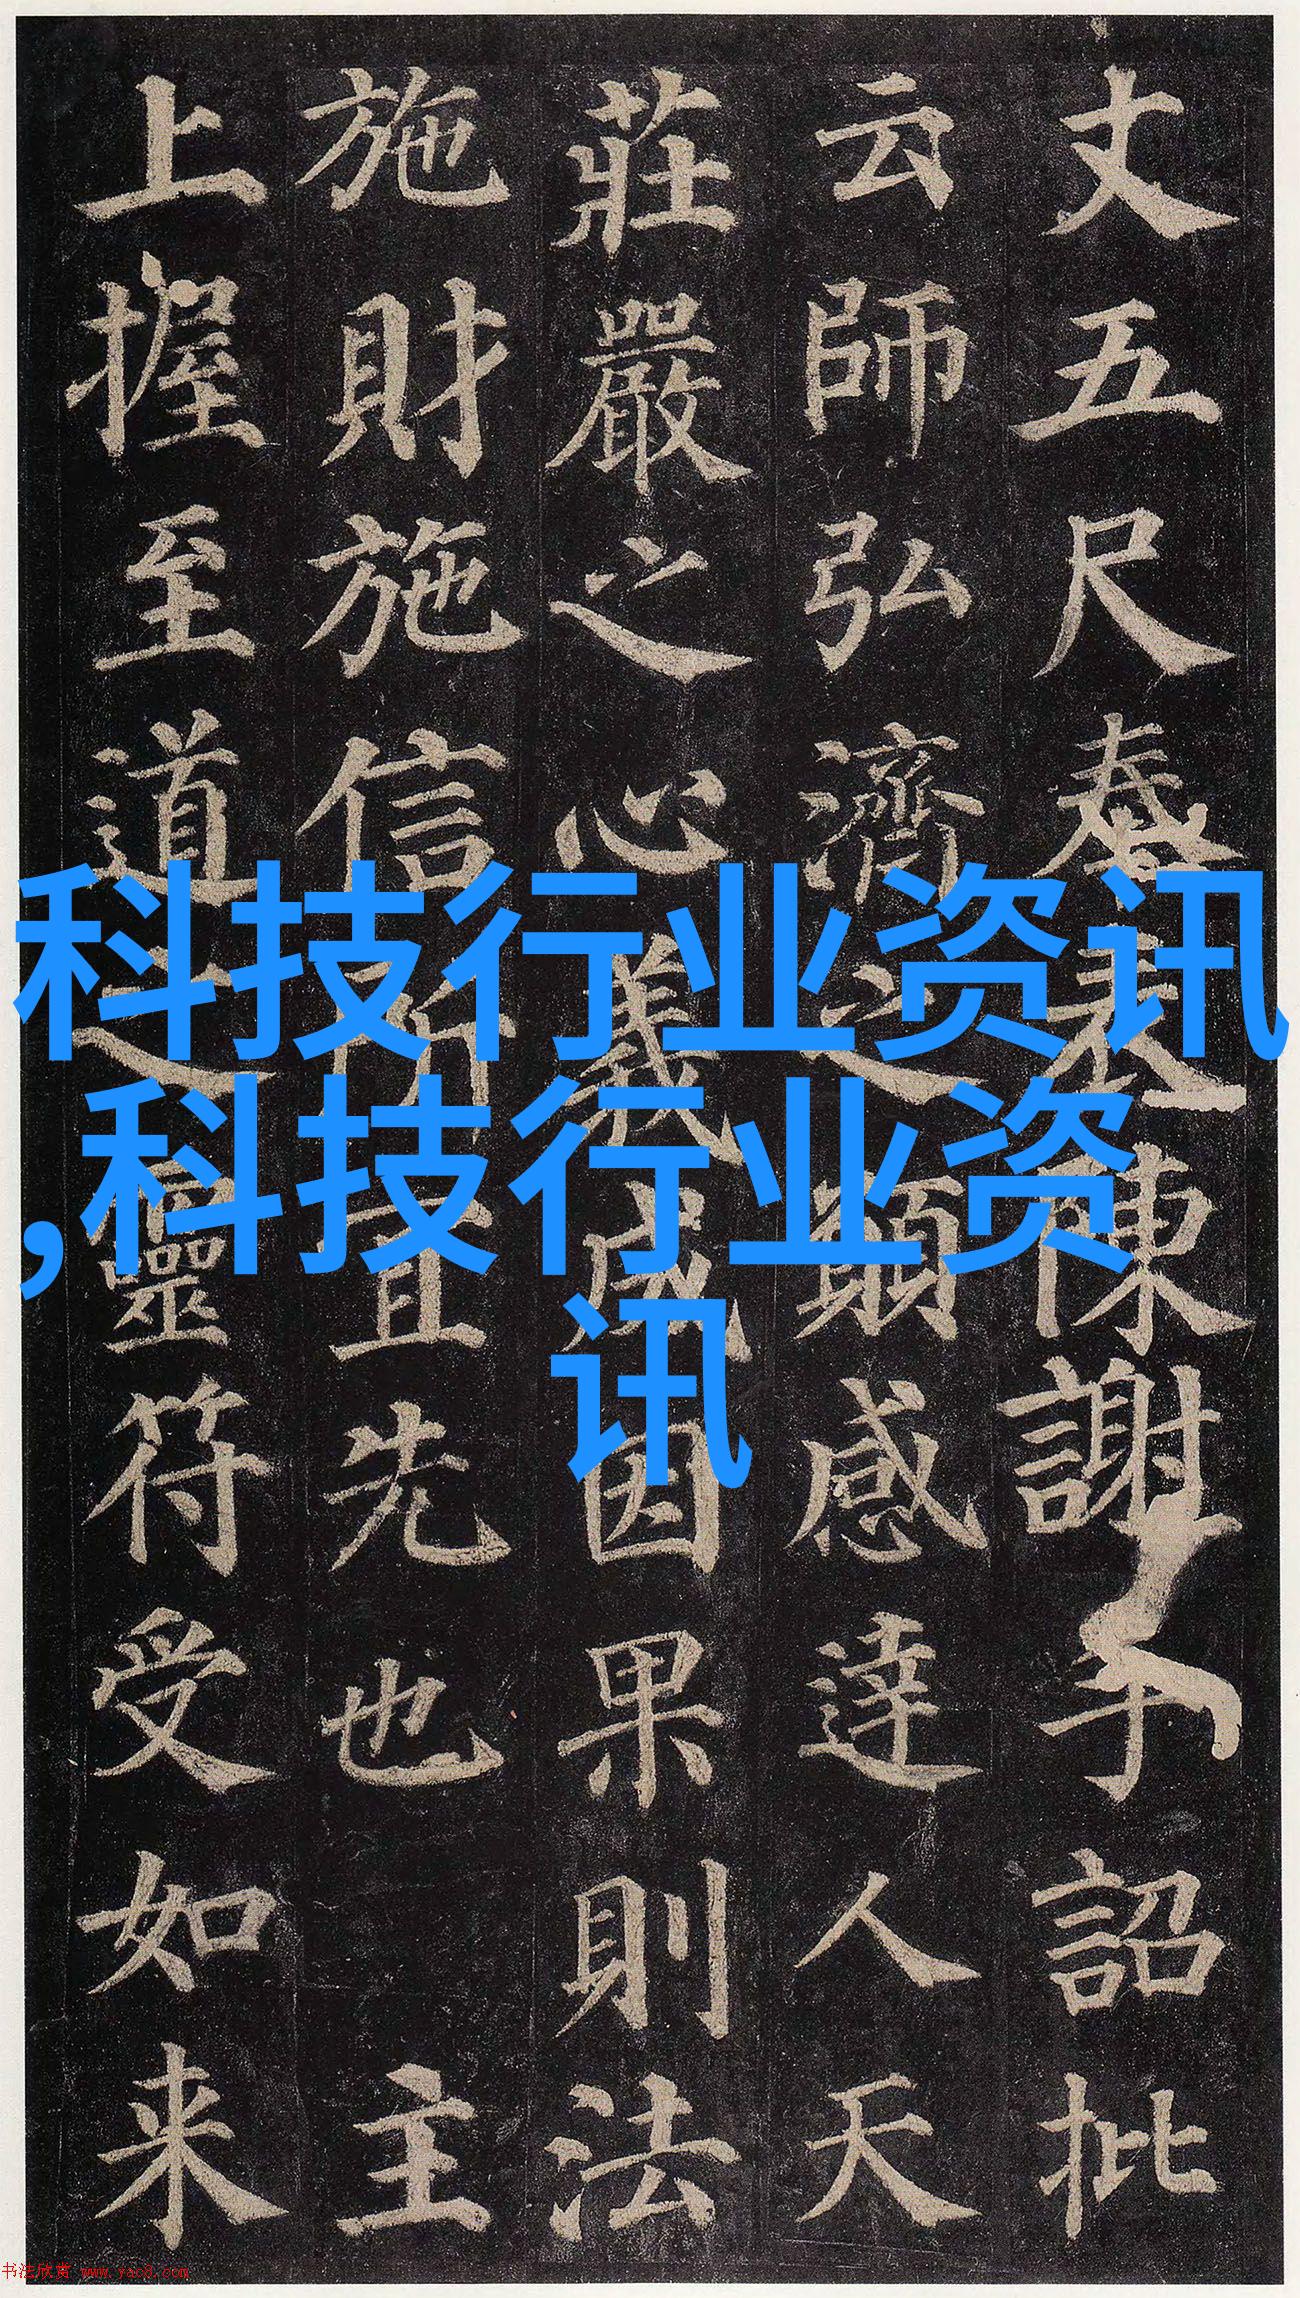 丈五尺奉表陳謝手詔批
云師弘濟之願感達人天
莊嚴之心義成因果則法
施財施信所宜先也主
上握至道之靈符受如来
科技行业资讯
,科技行业资
讯
书法欣赏 www.yac8.com